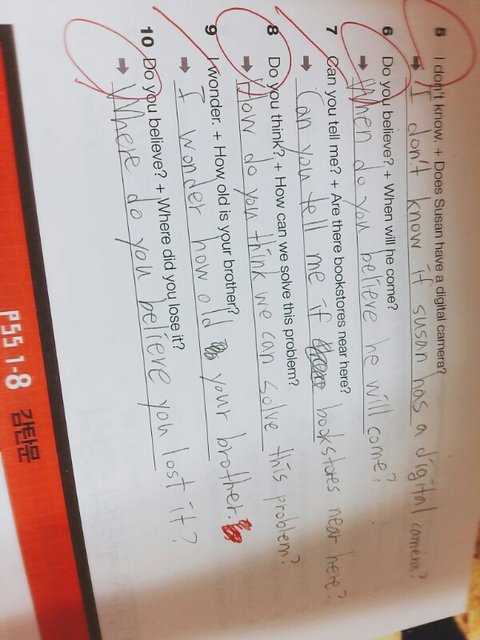 5 I don't know. + Does Susan have a digital camera?
➡ I don't know if susan has a digital camera?
6 Do you believe? + When will he come?
➡ When do you believe he will come?
7 Can you tell me? + Are there bookstores near here?
➡ Can you tell me if bookstores near here?
8 Do you think? + How can we solve this problem?
➡ How do you think we can solve this problem?
9 I wonder. + How old is your brother?
➡ I wonder how old your brother.
10 Do you believe? + Where did you lose it?
➡ Where do you believe you lost it?
P55 1-8 감탄문